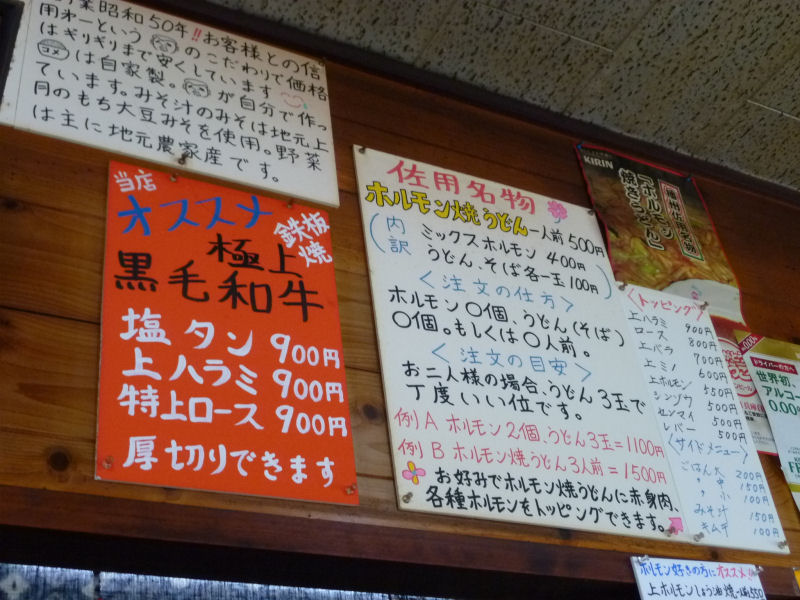 創業昭和50年!!お客様との信
用オーという のこだわりで価格
はギリギリまで安くしています
コメ は自家製。 が自分で作っ
ています。みそ汁のみそは地元上
月のもち大豆みそを使用。野菜
は主に地元農家産です。
当店
オススメ
鉄板
焼
極上
黒毛和牛
塩タン 900円
上ハラミ 900円
特上ロース 900円
厚切りできます
佐用名物
ホルモン焼うどん一人前500円
(内訳 ミックスホルモン 400円
うどん、そば各一玉100円)
<注文の仕方>
ホルモン〇個、うどん(そば)
〇個。もしくは〇人前。
<注文の目安>
お二人様の場合、うどん3玉で
丁度いい位です。
例A ホルモン2個、うどん3玉=1100円
例B ホルモン焼うどん3人前=1500円
お好みでホルモン焼うどんに赤身肉、
各種ホルモンをトッピングできます。
KIRIN
「ホルモン
焼きうどん」
<トッピング>
上ハラミ 900円
ロース 800円
上バラ 700円
上ミノ 600円
上ホルモン 550円
シンゾウ 500円
センマイ 500円
レバー 500円
<サイドメニュー>
ごはん大 200円
〃 中 150円
〃 小 100円
みそ汁 150円
キムチ 100円
ドライバーの方へ
世界初、
アルコー
0.00%
ホルモン好きの方にオススメ!
上ホルモンしょう油焼一人前550